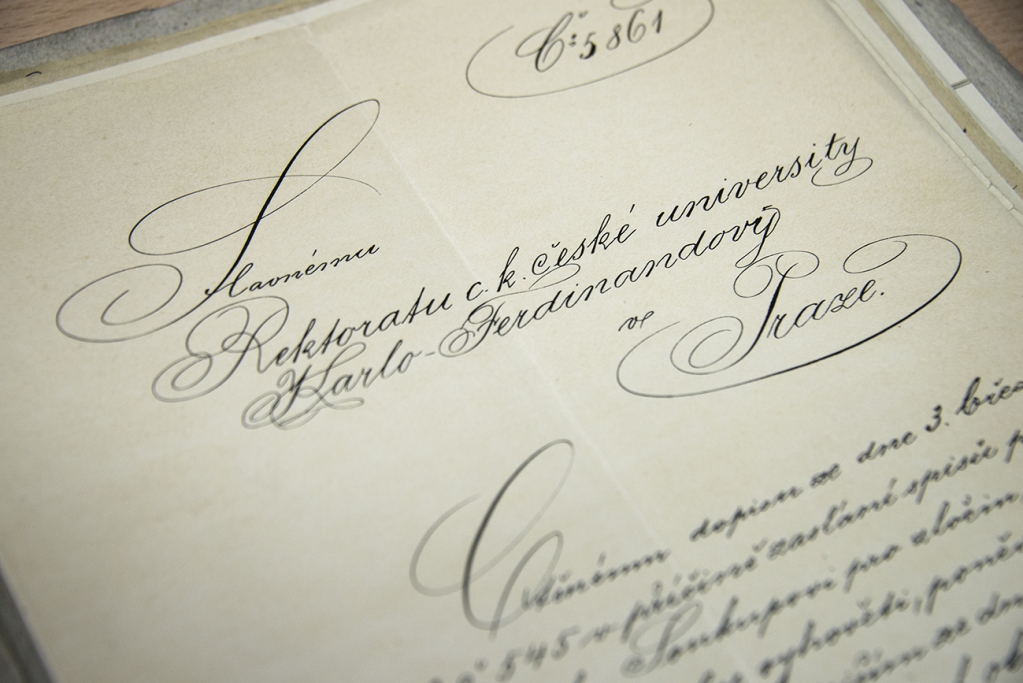 Č: 5861
Slavnému
Rektoratu c. k. české university
Karlo-Ferdinandovy
ve Praze.
Ctěnému dopisu ze dne 3. břez
545 v příčině zaslaní spisů
Soukupovi pro zločin
vyhověti, poně
ze dne